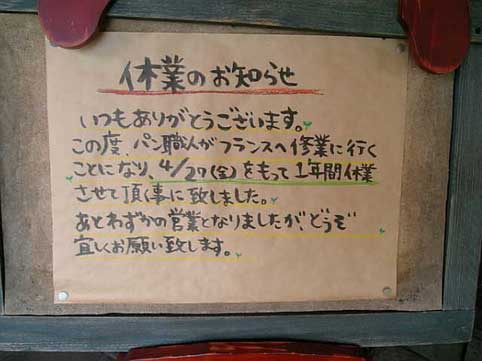 休業のお知らせ
いつもありがとうございます。
この度、パン職人がフランスへ修業に行く
ことになり、4/27(金)をもって1年間休業
させて頂く事に致しました。
あとわずかの営業となりましたが、どうぞ
宜しくお願い致します。